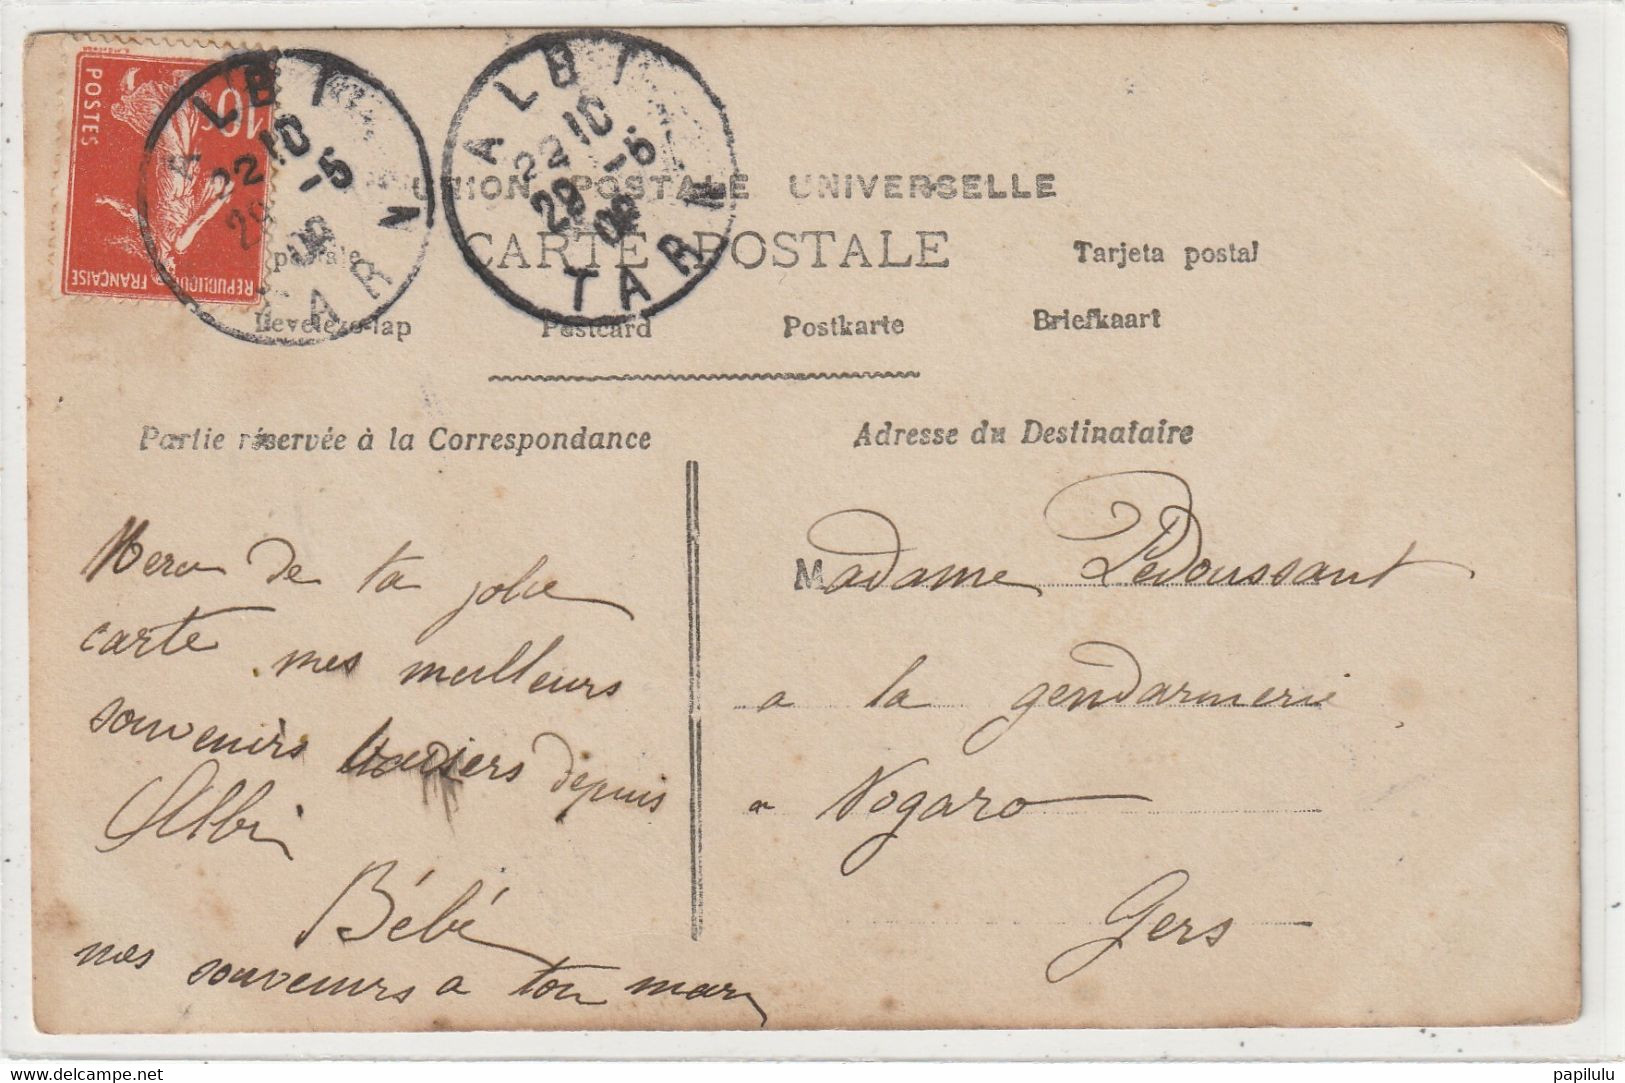 POSTES
10c
REPUBLIQUE FRANÇAISE
ALBI
22 10
29 -5
09
TARN
ALBI
22 10
29 -5
09
TARN
UNION POSTALE UNIVERSELLE
CARTE POSTALE
Tarjeta postal
postale
Levelezo-lap Postcard Postkarte Briefkaart
Partie réservée à la Correspondance
Adresse du Destinataire
Merci de ta jolie
carte mes meilleurs
souvenirs baisers depuis
Albi
Bébé
mes souvenirs a ton mari
Madame Pedoussaut
a la gendarmerie
a Nogaro
Gers
delcampe.net
papilulu